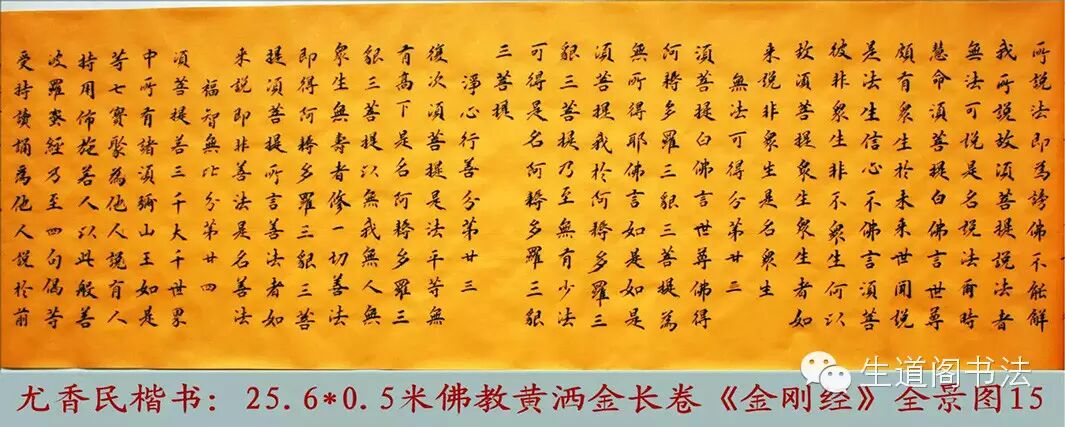 所説法即為謗佛不能解
我所説故須菩提説法者
無法可説是名説法爾時
慧命須菩提白佛言世尊
頗有眾生於未来世聞説
是法生信心不佛言須菩
彼非眾生非不眾生何以
故須菩提眾生眾生者如
来説非眾生是名眾生
無法可得分第廿三
須菩提白佛言世尊佛得
阿耨多羅三貌三菩提為
無所得耶佛言如是如是
須菩提我於阿耨多羅三
貌三菩提乃至無有少法
可得是名阿耨多羅三貌
三菩提
淨心行善分第廿三
復次須菩提是法平等無
有高下是名阿耨多羅三
貌三菩提以無我無人無
眾生無壽者修一切善法
即得阿耨多羅三貌三菩
提須菩提所言善法者如
来説即非善法是名善法
福智無比分第廿四
須菩提善三千大千世界
中所有諸須彌山王如是
等七寶聚為他人説有人
持用佈施若人以此般善
波羅蜜經乃至四句偈等
受持讀誦為他人説於前
生道阁书法
尤香民楷书：25.6*0.5米佛教黄洒金长卷《金刚经》全景图15